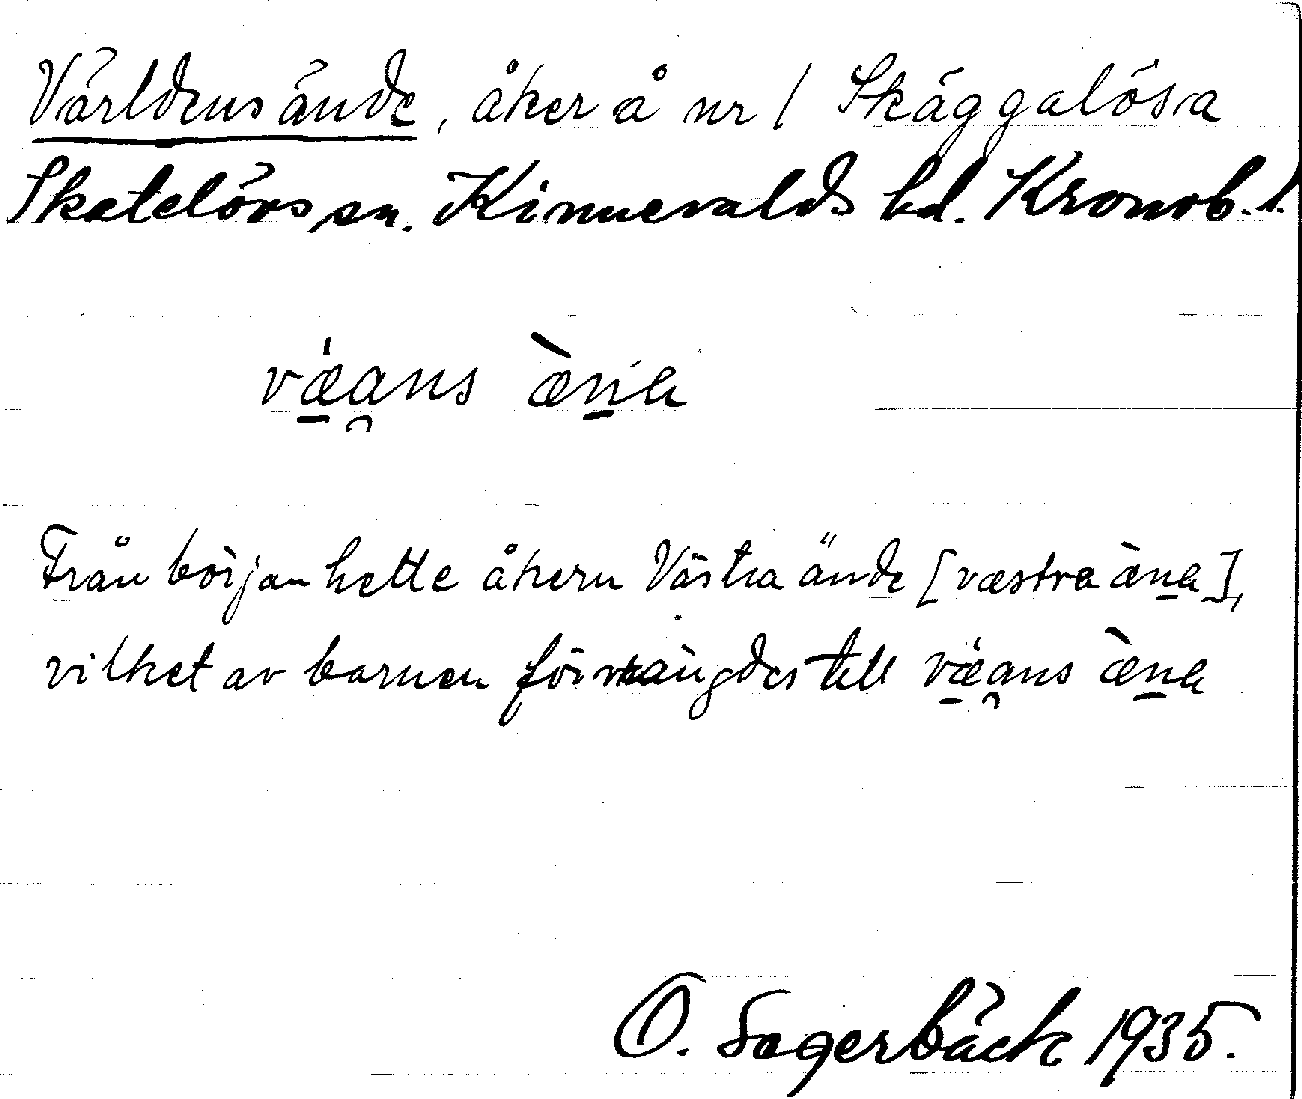 Världens ände, åker å nr 1 Skäggalösa
Skatelövs sn. Kinnevalds hd. Kronob. l.
vǽ̱a̯ns æ̀ṉa
Från början hette åkern Västra ände [væstra æ̀ṉa],
vilket av barnen förvrängdes till vǽ̱a̯ns æ̀ṉa
O. Sagerbäck 1935.